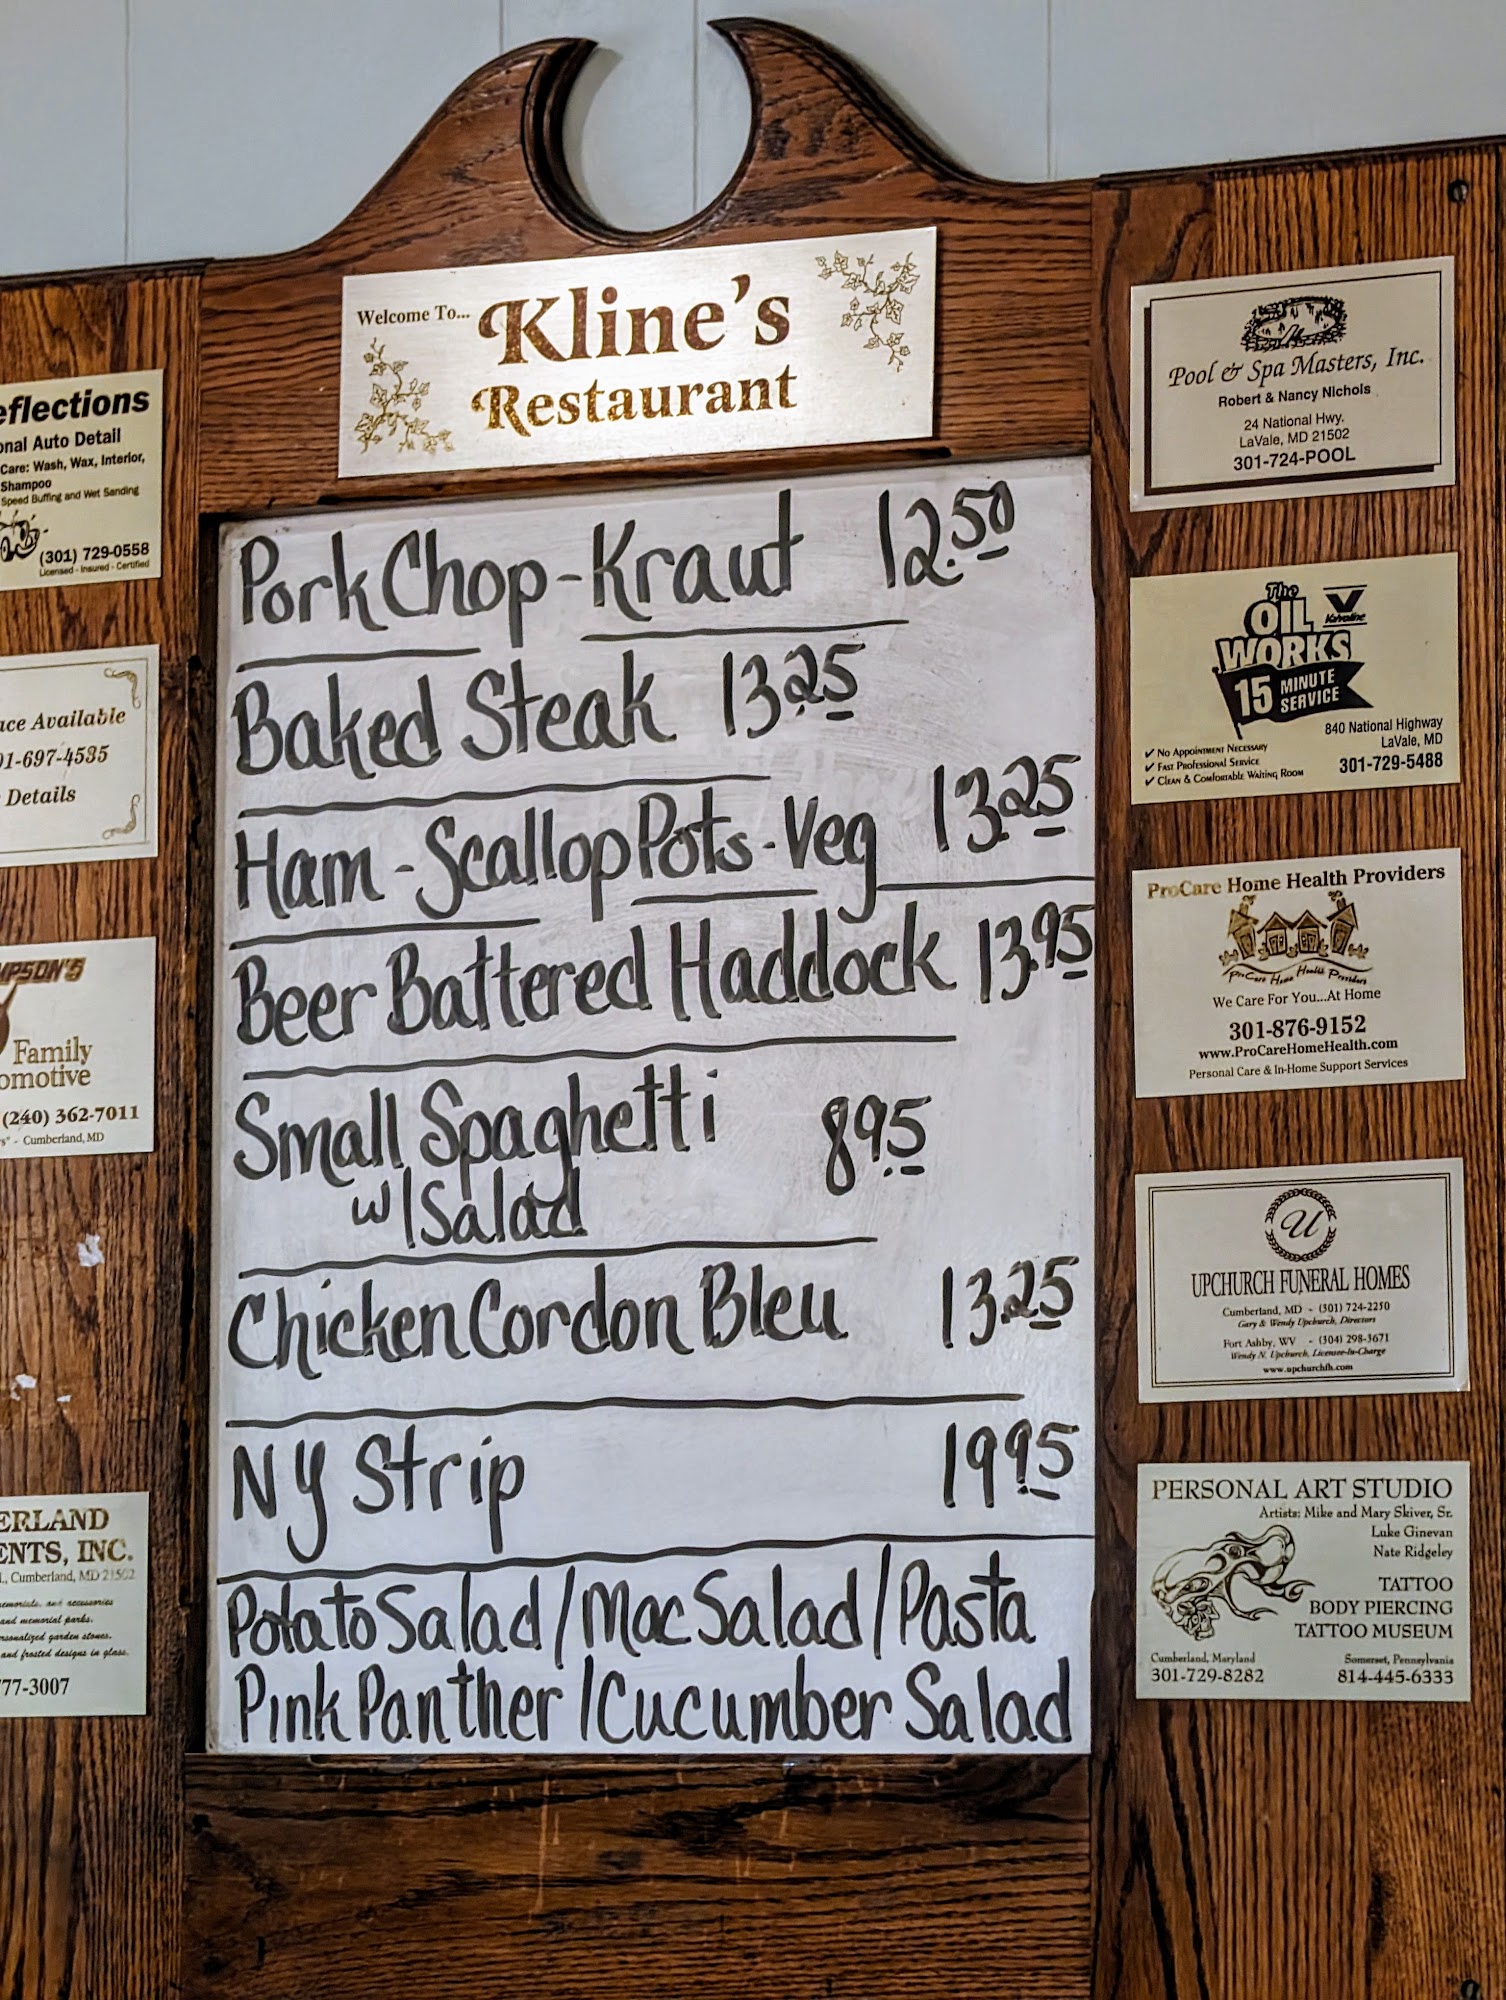 Welcome To...
Kline's
Restaurant
Pork Chop - Kraut 12.50
Baked Steak 13.25
Ham - Scallop Pots - Veg 13.25
Beer Battered Haddock 13.95
Small Spaghetti 8.95
w/ Salad
Chicken Cordon Bleu 13.25
NY Strip 19.95
Potato Salad / Mac Salad / Pasta
Pink Panther / Cucumber Salad
eflections
onal Auto Detail
Care: Wash, Wax, Interior,
Shampoo
Speed Buffing and Wet Sanding
(301) 729-0558
Licensed - Insured - Certified
ace Available
01-697-4535
Details
MPSON'S
Family
omotive
(240) 362-7011
Cumberland, MD
ERLAND
ENTS, INC.
Cumberland, MD 21502
and accessories
and memorial parks.
garden stones.
and frosted designs in glass.
777-3007
Pool & Spa Masters, Inc.
Robert & Nancy Nichols
24 National Hwy.
LaVale, MD 21502
301-724-POOL
The
OIL
WORKS
Valvoline
15 MINUTE
SERVICE
840 National Highway
LaVale, MD
301-729-5488
✓ No Appointment Necessary
✓ Fast Professional Service
✓ Clean & Comfortable Waiting Room
ProCare Home Health Providers
ProCare Home Health Providers
We Care For You...At Home
301-876-9152
www.ProCareHomeHealth.com
Personal Care & In-Home Support Services
U
UPCHURCH FUNERAL HOMES
Cumberland, MD - (301) 724-2250
Gary & Wendy Upchurch, Directors
Fort Ashby, WV - (304) 298-3671
Wendy N. Upchurch, Licensee-In-Charge
www.upchurchfh.com
PERSONAL ART STUDIO
Artists: Mike and Mary Skiver, Sr.
Luke Ginevan
Nate Ridgeley
TATTOO
BODY PIERCING
TATTOO MUSEUM
Cumberland, Maryland
301-729-8282
Somerset, Pennsylvania
814-445-6333